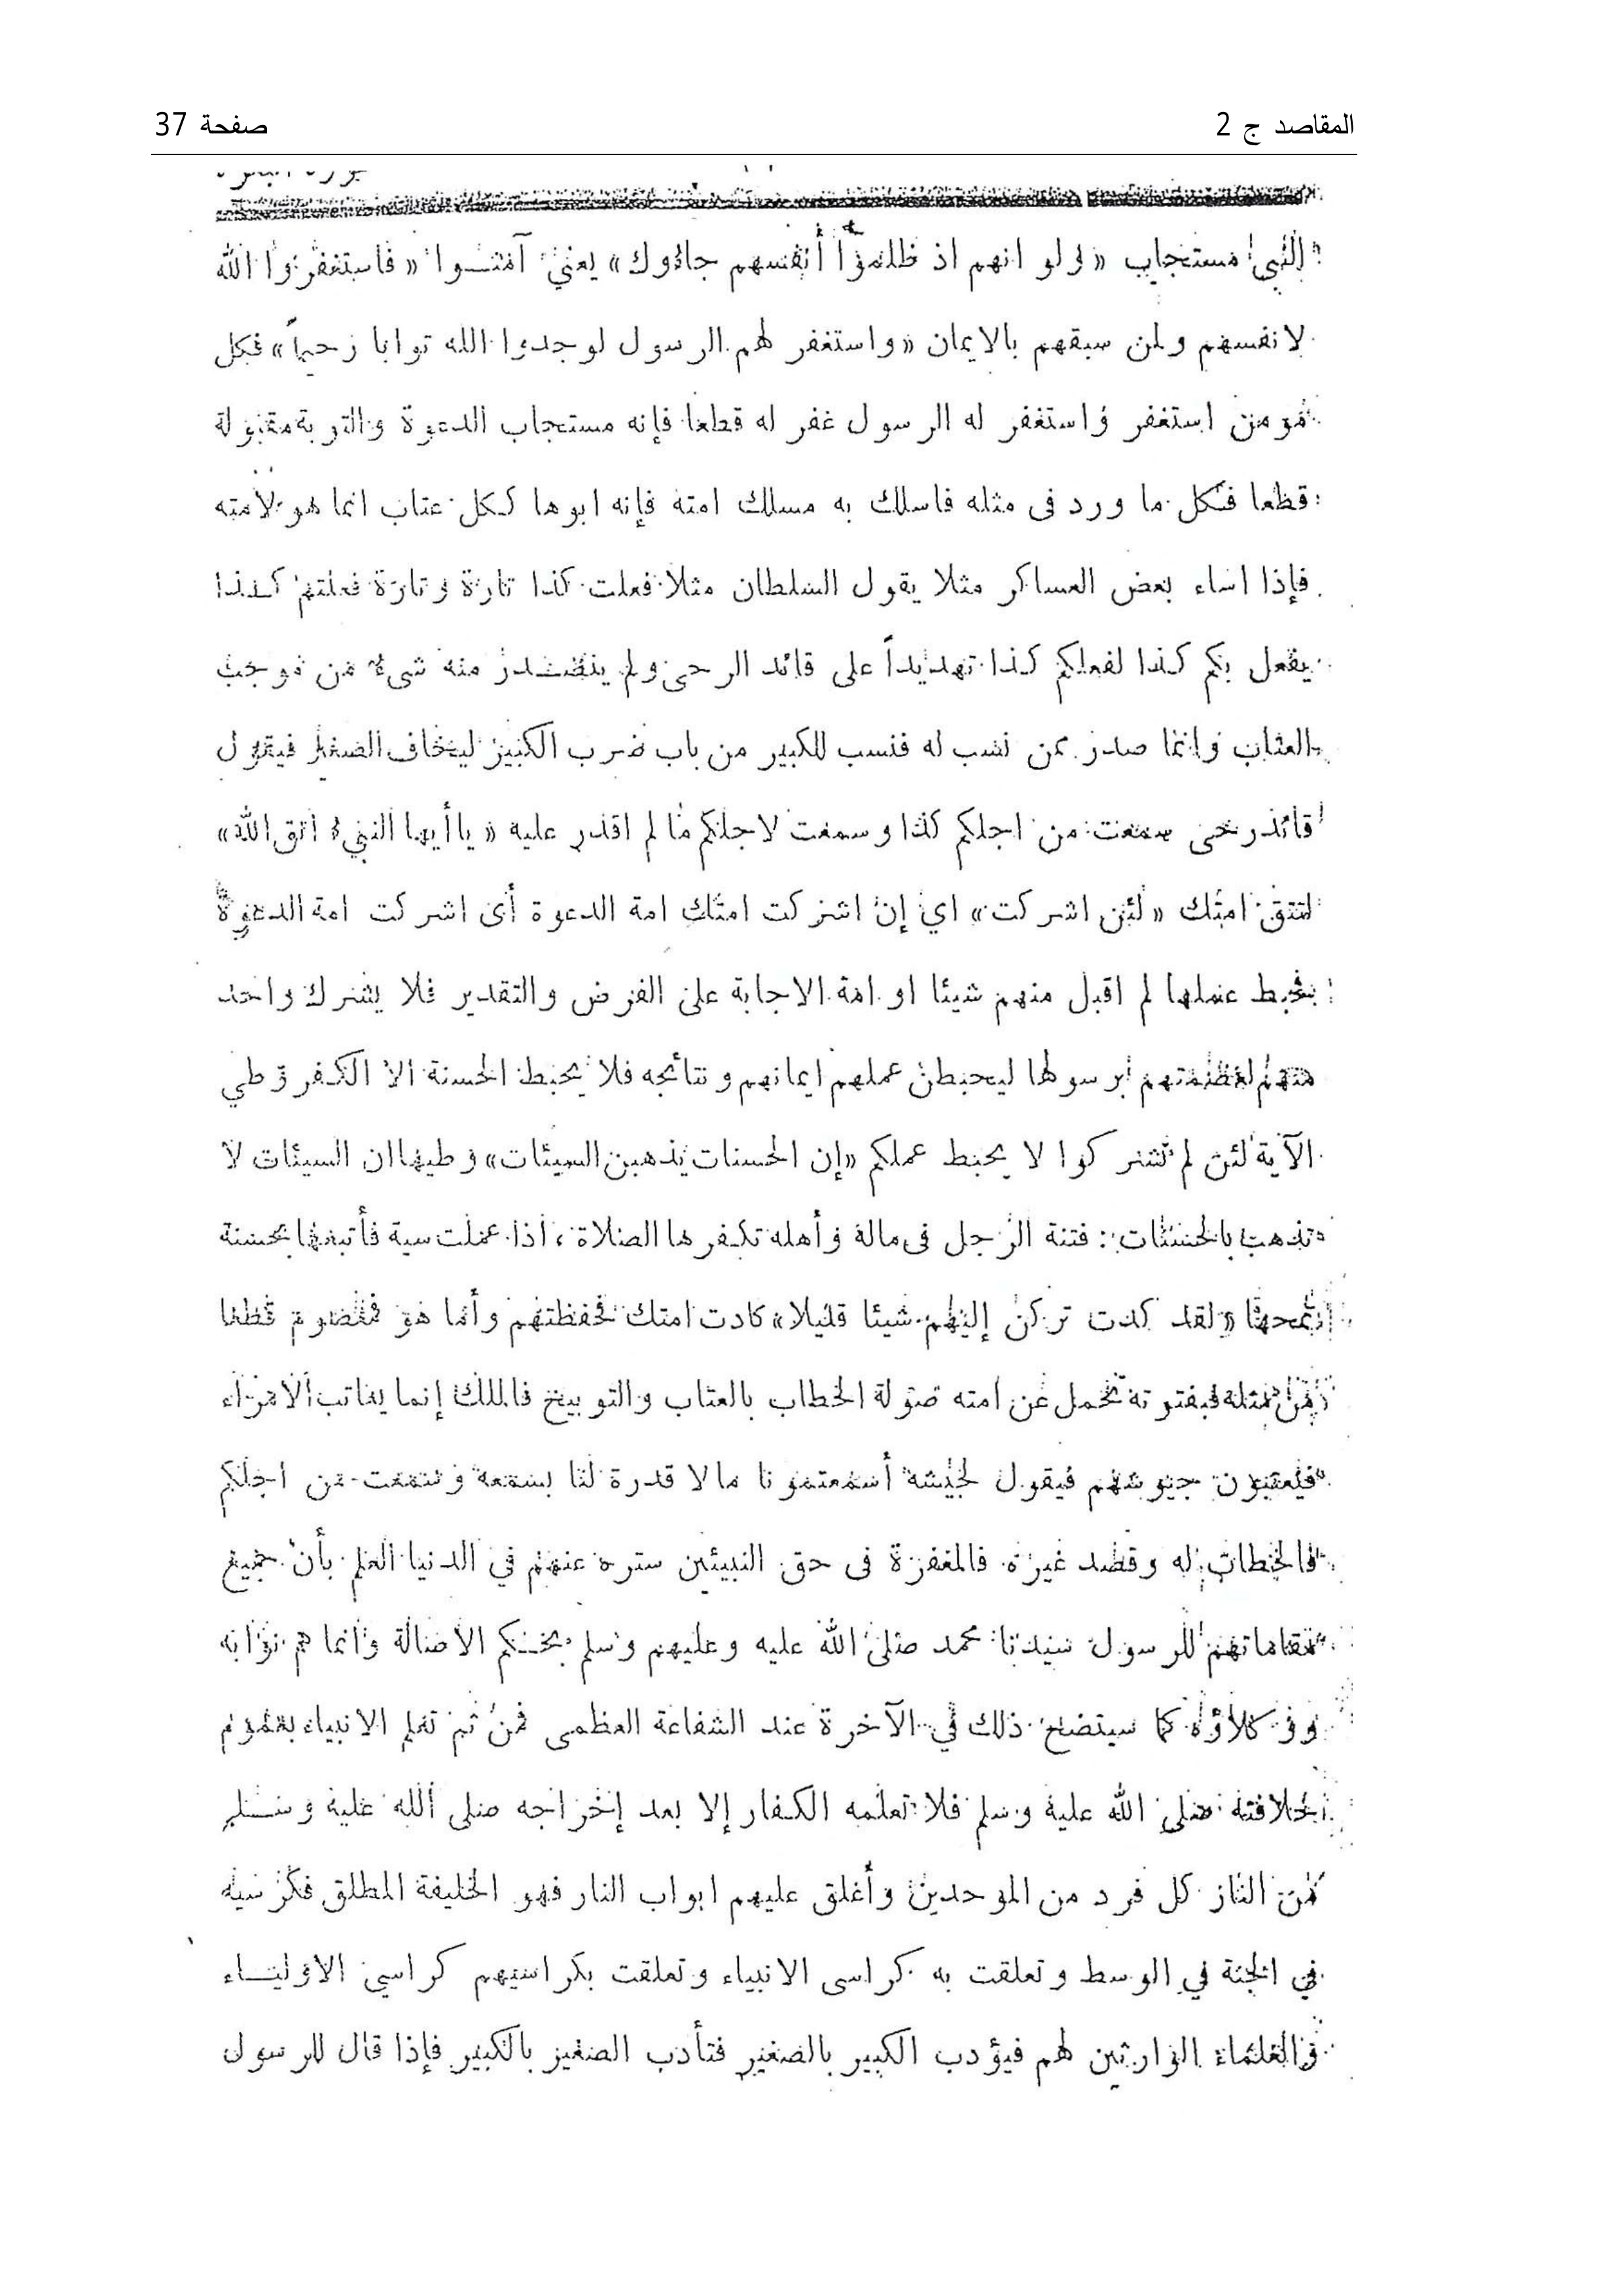 المقاصد ج 2
صفحة 37
النبي مستجاب «ولو انهم اذ ظلموا أنفسهم جاءوك» يعني آمنوا «فاستغفروا الله
لانفسهم ولمن سبقهم بالايمان «واستغفر لهم الرسول لوجدوا الله توابا رحيماً» فكل
مؤمن استغفر واستغفر له الرسول غفر له قطعا فإنه مستجاب الدعوة والتوبة مقبولة
قطعا فكل ما ورد فى مثله فاسلك به مسلك امته فإنه ابوها ككل عتاب انما هو لامته
فإذا اساء بعض العساكر مثلا يقول السلطان مثلا فعلت كذا تارة وتارة فعلتم كذا
يفعل بكم كذا لفعلكم كذا تهديداً على قائد الرحى ولم يتصدر منه شىء من موجب
العتاب وانما صدر ممن نسب له فنسب للكبير من باب ضرب الكبير ليخاف الصغير فيقول
قائد رحى سمعت من اجلكم كذا وسمعت لاجلكم ما لم اقدر عليه «يا أيها النبيء اتق الله»
لتتق امتك «لئن اشركت» اي إن اشركت امتك امة الدعوة أى اشركت امة الدعوة
يحبط عملها لم اقبل منهم شيئا او امة الاجابة على الفرض والتقدير فلا يشرك واحد
منهم لعظمتهم برسولها ليحبطن عملهم ايمانهم ونتائجه فلا يحبط الحسنة الا الكفر وطي
الآية لئن لم تشركوا لا يحبط عملكم «إن الحسنات يذهبن السيئات» وطيها ان السيئات لا
تذهب بالحسنات: فتنة الرجل فى ماله وأهله تكفرها الصلاة، اذا عملت سية فأتبعها بحسنة
تمحها «لقد كدت تركن إليهم شيئا قليلا» كادت امتك فحفظتهم وأما هو فمعصوم قطعا
من مثله فبفتوته تحمل عن امته صولة الخطاب بالعتاب والتوبيخ فالملك إنما يعاتب الامراء
فيعتبون جيوشهم فيقول لجيشه أسمعتمونا ما لا قدرة لنا بسمعه وسمعت من اجلكم
فالخطاب له وقصد غيره فالمغفرة فى حق النبيئين ستره عنهم في الدنيا العلم بأن جميع
مقاماتهم للرسول سيدنا محمد صلى الله عليه وعليهم وسلم بحكم الاصالة وانما هم نوابه
كما سيتضح ذلك في الآخرة عند الشفاعة العظمى فمن ثم تعلم الانبياء بعموم
خلافته صلى الله عليه وسلم فلا تعلمه الكفار إلا بعد إخراجه صلى الله عليه وسلم
من النار كل فرد من الموحدين وأغلق عليهم ابواب النار فهو الخليفة المطلق فكرسيه
في الجنة في الوسط وتعلقت به كراسى الانبياء وتعلقت بكراسيهم كراسي الاولياء
والعلماء الوارثين لهم فيؤدب الكبير بالصغير فتأدب الصغير بالكبير فإذا قال للرسول